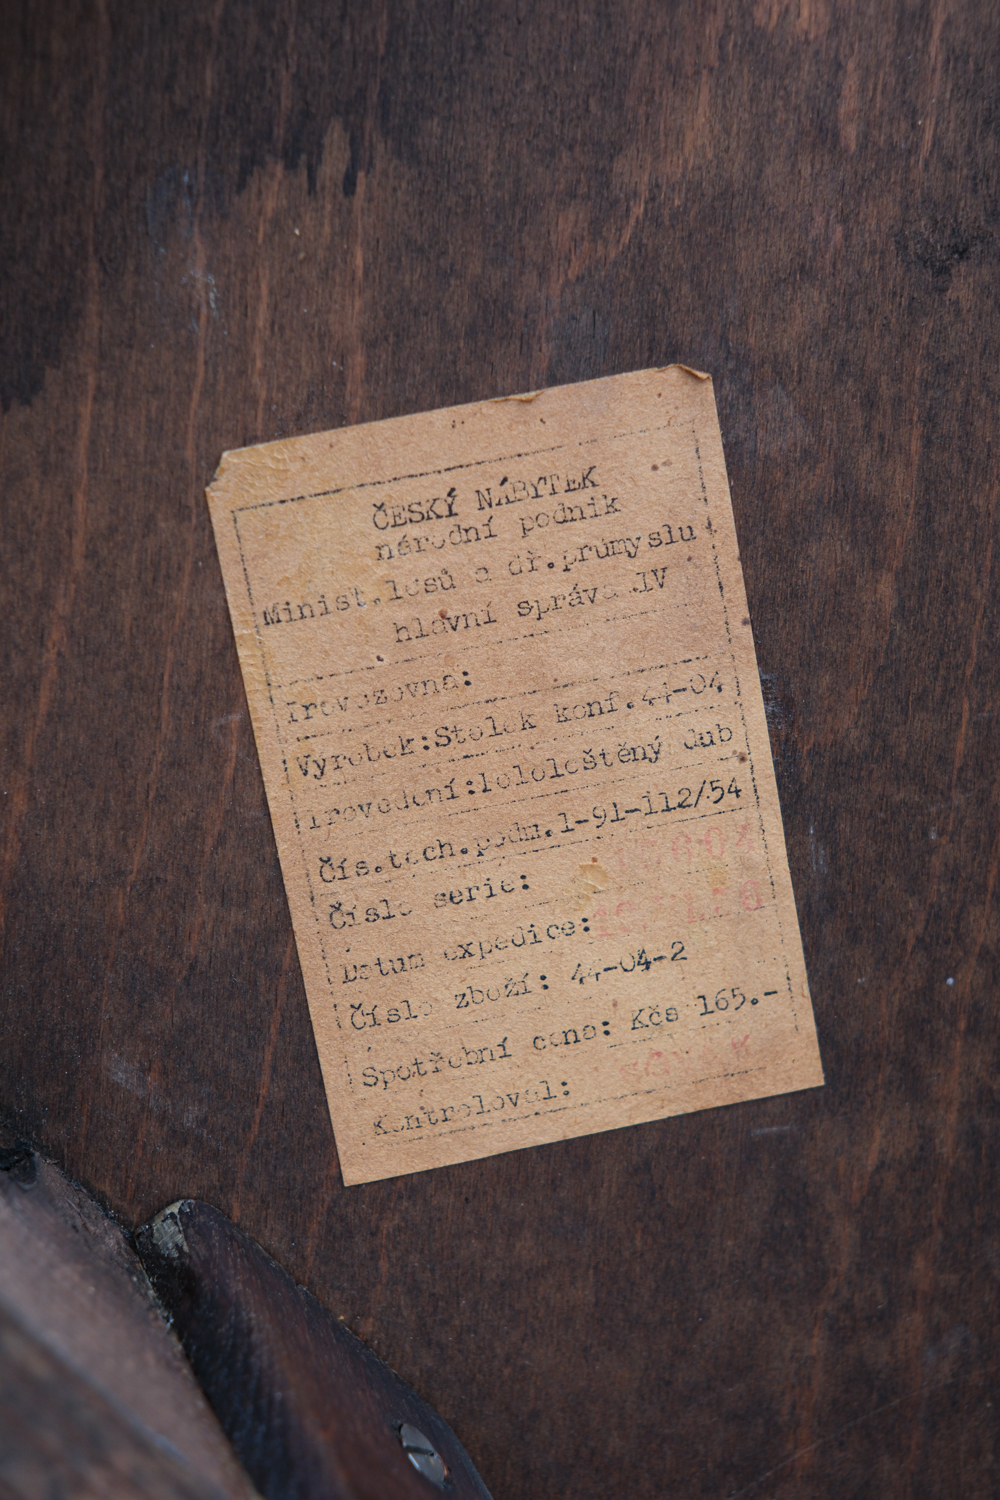 ČESKÝ NÁBYTEK
národní podnik
Minist.lesů a dř.průmyslu
hlavní správa IV
Provozovna:
Výrobek:Stolek konf.44-04
Provedení:pololeštěný dub
Čís.tech.podm.1-91-112/54
Číslo serie:
Datum expedice:
Číslo zboží: 44-04-2
Spotřební cena: Kčs 165.-
Kontroloval: